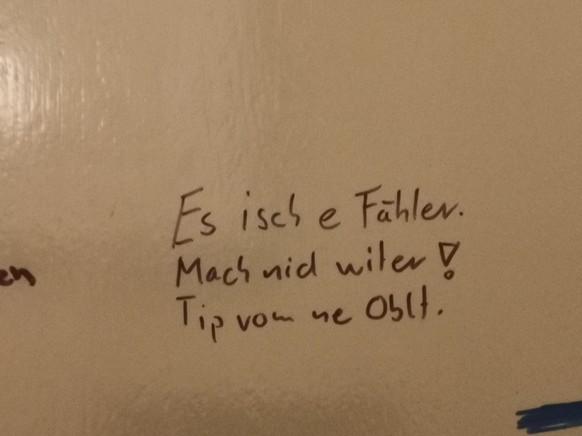 Es isch e Fähler.
Mach nid witer!
Tip vom ne Oblt.
en